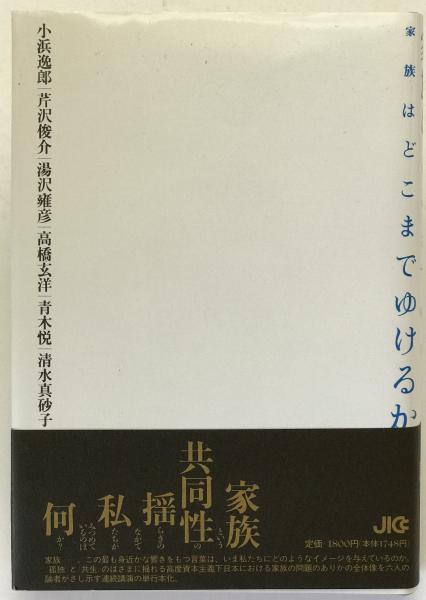 家族はどこまでゆけるか
小浜逸郎|芹沢俊介|湯沢雍彦|高橋玄洋|青木悦|清水真砂子
家族という
共同性の
揺らぎの
なかで
私たちが
みつめて
いるものは
何か?
JICC
定価・1800円(本体1748円)
家族──。この最も身近かな響きをもつ言葉は、いま私たちにどのようなイメージを与えているのか。
“孤独”と“共生”のはざまに揺れる高度資本主義下日本における家族の問題のありかの全体像を六人の
論者がさし示す連続講演の単行本化。